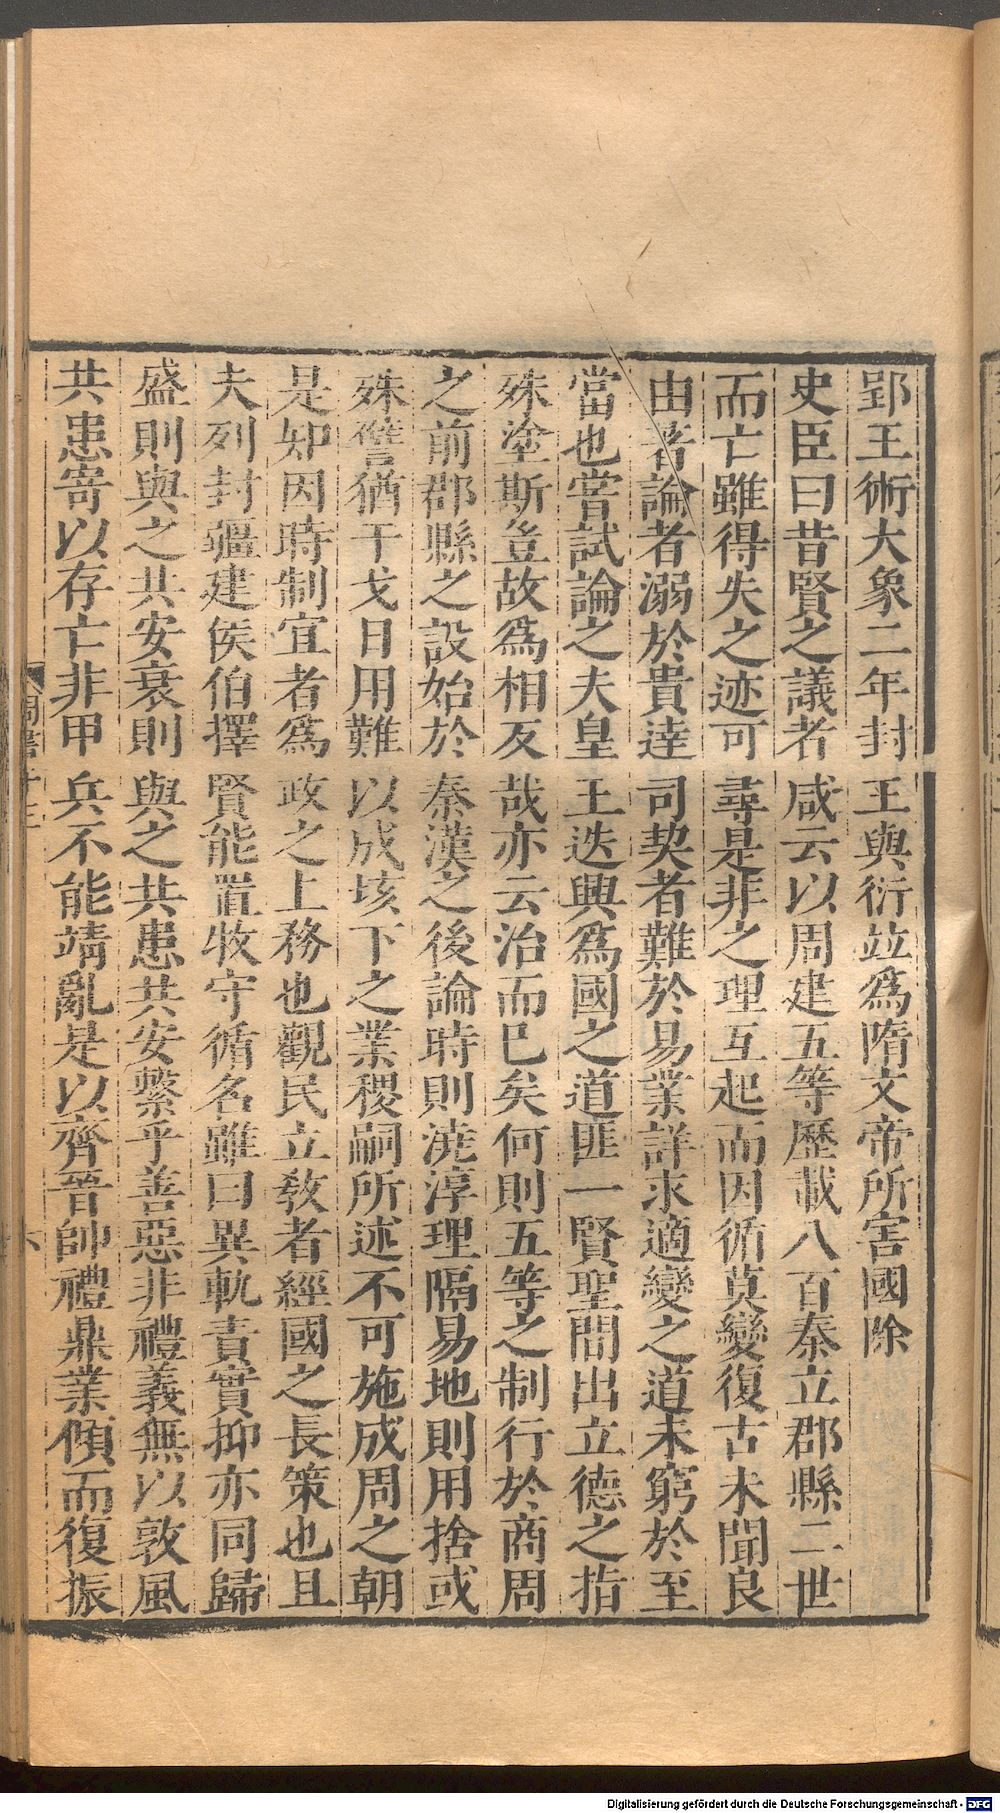 郢王術大象二年封王與衍竝爲隋文帝所害國除
史臣曰昔賢之議者咸云以周建五等歷載八百秦立郡縣二世
而亡雖得失之迹可尋是非之理互起而因循莫變復古未聞良
由著論者溺於貴達司契者難於易業詳求適變之道未窮於至
當也嘗試論之夫皇王迭興爲國之道匪一賢聖間出立德之指
殊塗斯豈故爲相反哉亦云治而已矣何則五等之制行於商周
之前郡縣之設始於秦漢之後論時則澆淳理隔易地則用捨或
殊譬猶干戈日用難以成垓下之業稷嗣所述不可施成周之朝
是知因時制宜者爲政之上務也觀民立教者經國之長策也且
夫列封疆建侯伯擇賢能置牧守循名雖曰異軌責實抑亦同歸
盛則與之共安衰則與之共患共安繫乎善惡非禮義無以敦風
共患寄以存亡非甲兵不能靖亂是以齊晉帥禮鼎業傾而復振
周書十三
六
Digitalisierung gefördert durch die Deutsche Forschungsgemeinschaft - DFG